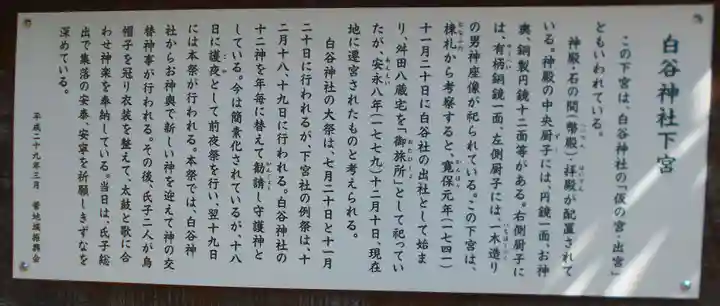 白谷神社下宮
この下宮は、白谷神社の「仮の宮・出宮」
ともいわれている。
神殿・石の間(幣殿)・拝殿が配置されて
いる。神殿の中央厨子には、円鏡一面、お神
輿、銅製円鏡十二面等がある。右側厨子に
は、有柄銅鏡一面、左側厨子には、一木造り
の男神座像が祀られている。この下宮は、
棟札から考察すると、寛保元年(一七四一)
十一月二十日に白谷社の出社として始ま
り、舛田八蔵宅を「御旅所」として祀ってい
たが、安永八年(一七七九)十二月十日、現在
地に遷宮されたものと考えられる。
白谷神社の大祭は、七月二十日と十一月
二十日に行われるが、下宮社の例祭は、十
二月十八、十九日に行われる。白谷神社の
十二神を年毎に替えて勧請し守護神と
している。今は簡素化されているが、十八
日に護夜として前夜祭を行い、翌十九日
には本祭が行われる。本祭では、白谷神
社からお神輿で新しい神を迎えて神の交
替神事が行われる。その後、氏子二人が烏
帽子を冠り衣装を整えて、太鼓と歌に合
わせ神楽を奉納している。当日は、氏子総
出で集落の安泰、安寧を祈願しきずなを
深めている。
平成二十九年三月 菅地域振興会